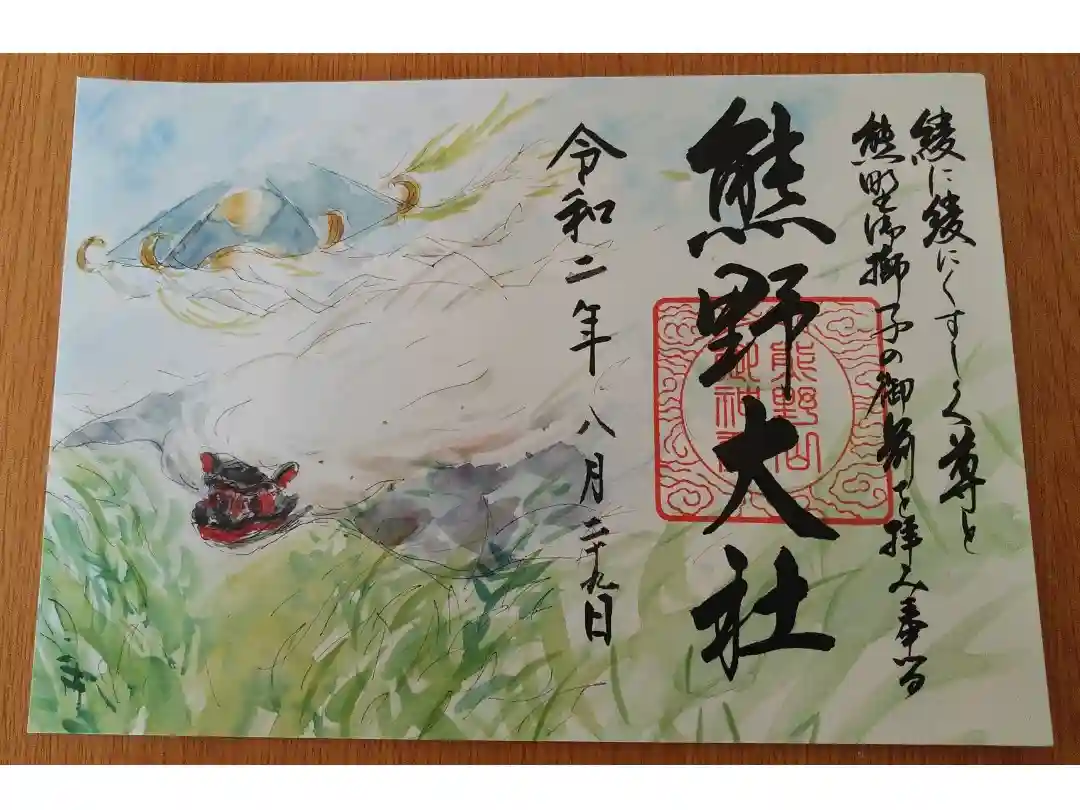 綾に綾にくすしく尊と
熊野御獅子の御を拝み奉る
熊野大社
熊野
御神
令和二年八月二十九日